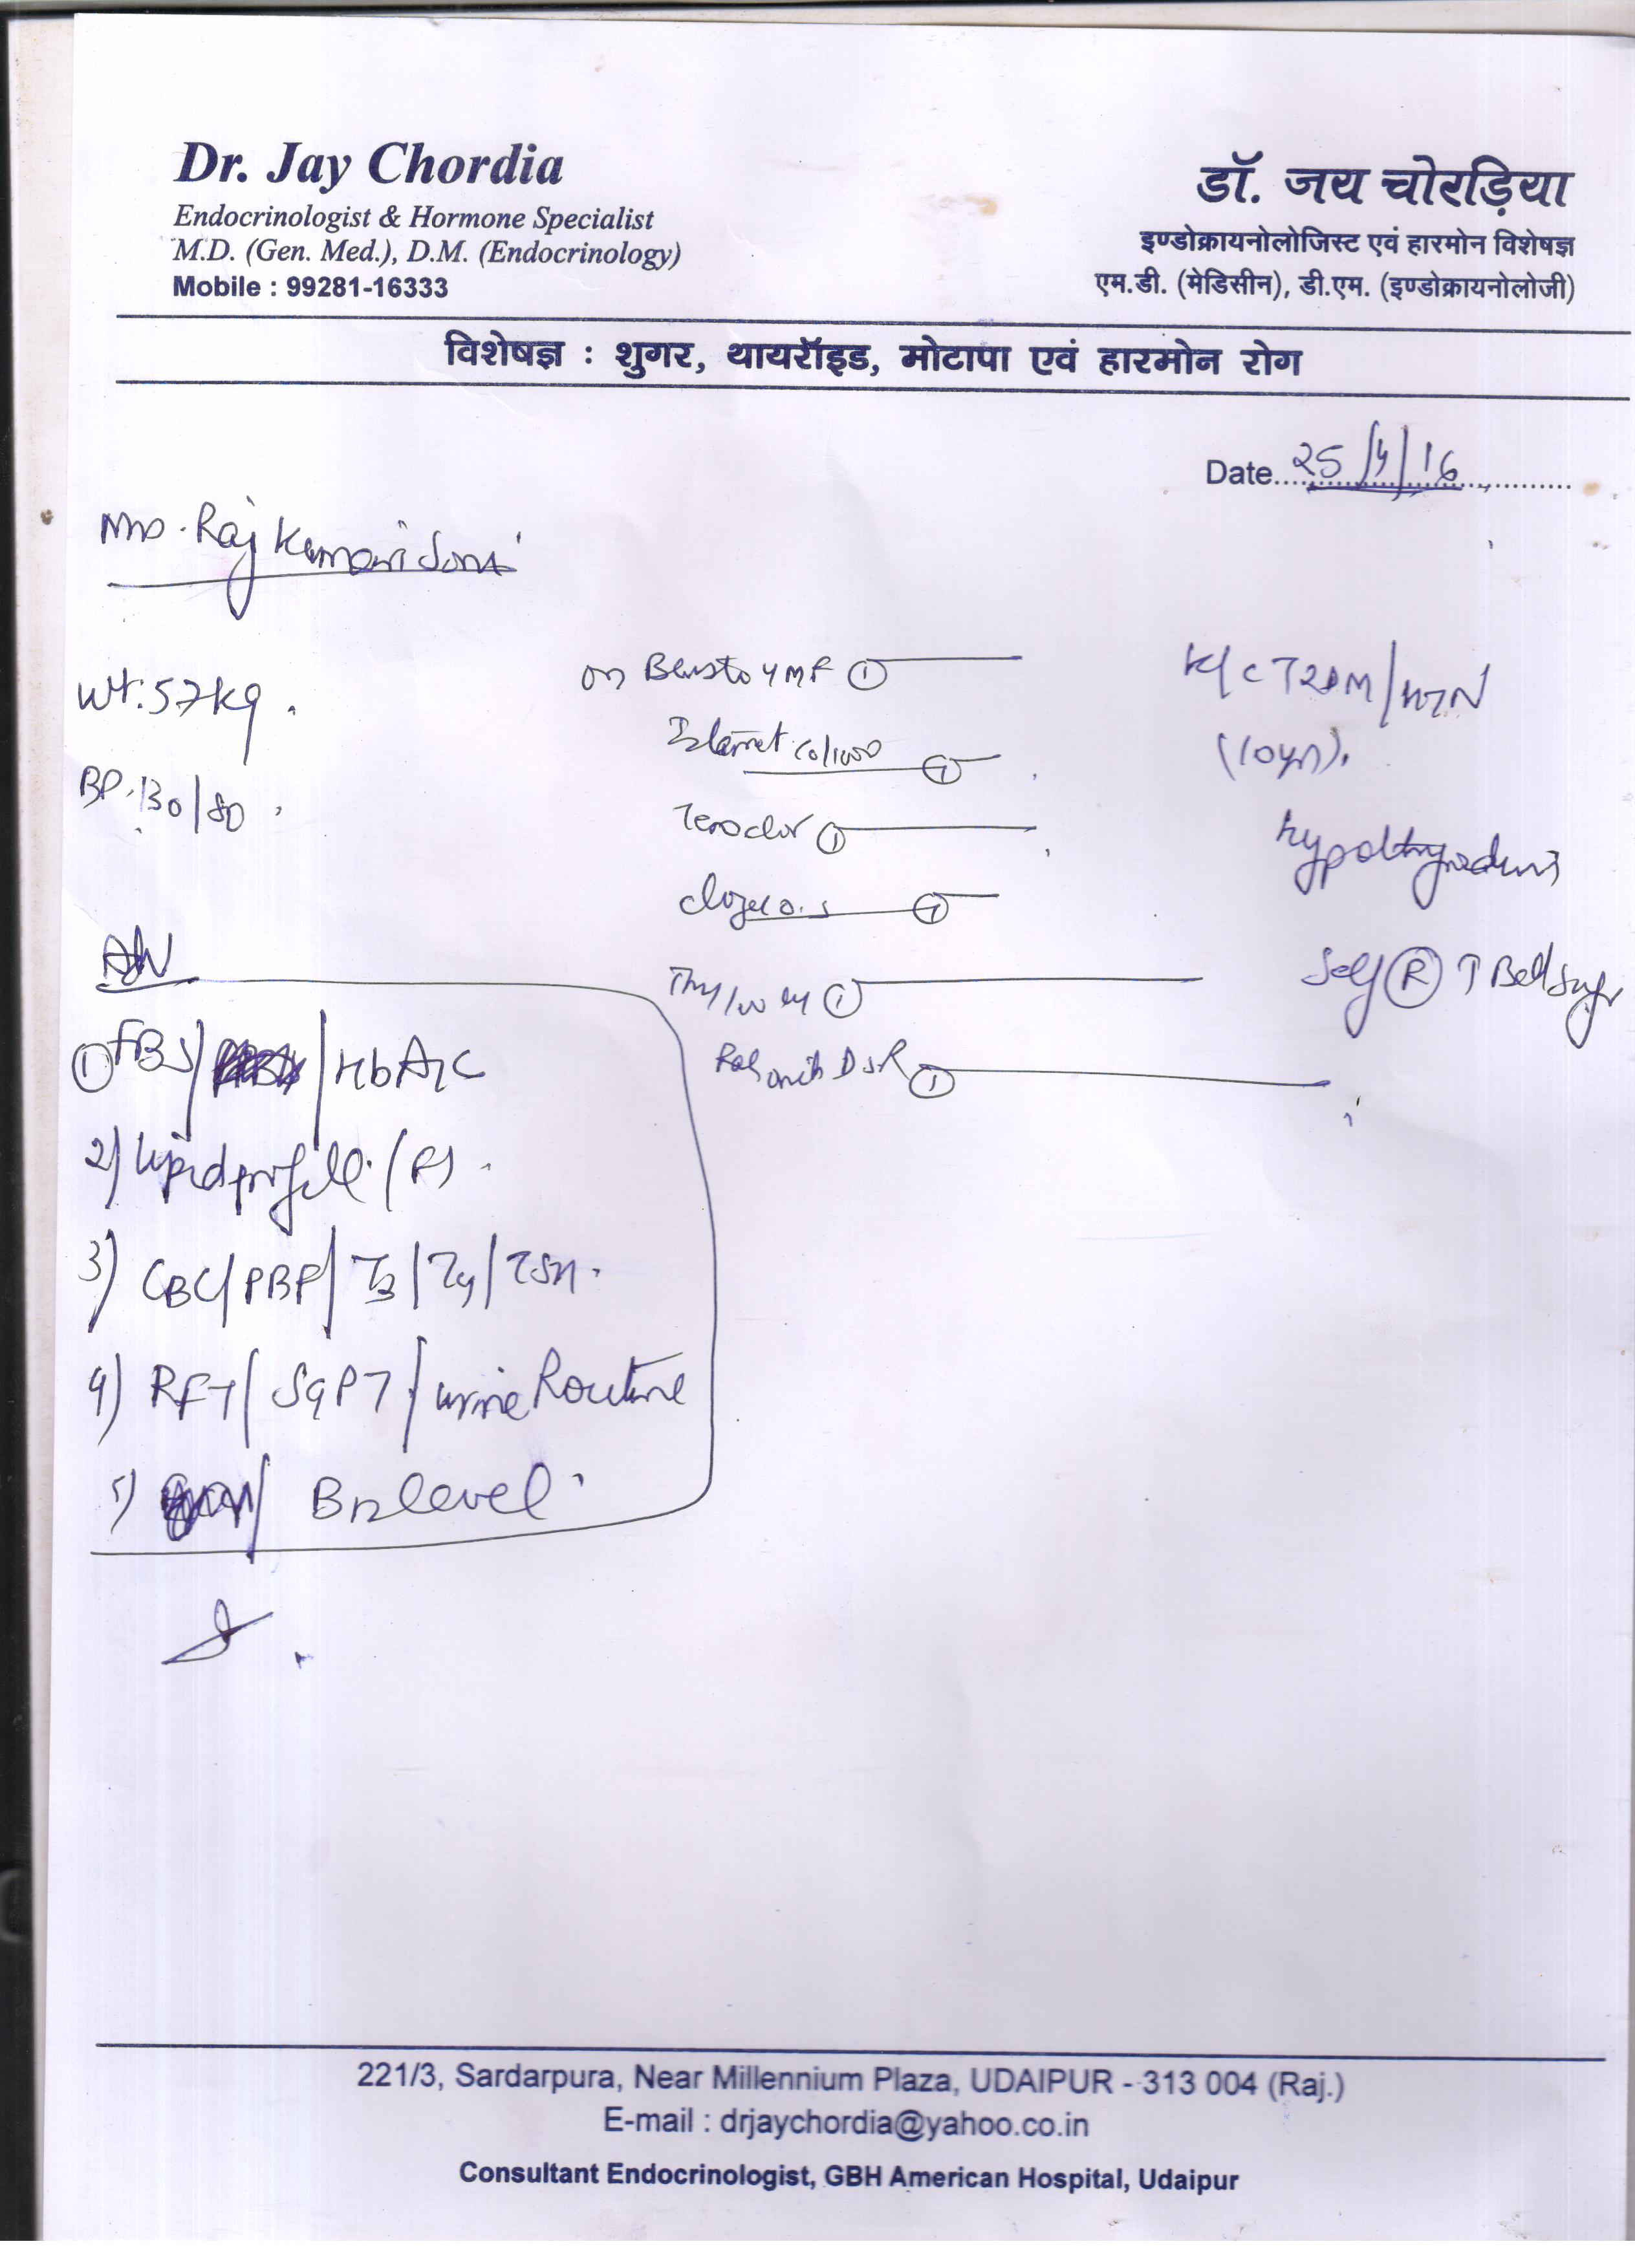 Dr. Jay Chordia
Endocrinologist & Hormone Specialist
M.D. (Gen. Med.), D.M. (Endocrinology)
Mobile : 99281-16333
डॉ. जय चोरड़िया
इण्डोक्रायनोलोजिस्ट एवं हारमोन विशेषज्ञ
एम.डी. (मेडिसीन), डी.एम. (इण्डोक्रायनोलोजी)
विशेषज्ञ : शुगर, थायरॉइड, मोटापा एवं हारमोन रोग
Date 25/4/16
Raj Kumari Soni
Wt. 57kg.
BP. 130/80
on 4 MF ①
①
①
①
①
DSR ①
K/C T2DM/HTN
(10yr).
hypothyroidism
Self Ⓡ
① FBS/ /HbA1C
2) Lipid profile (F)
3) CBC/PBF/T3/T4/TSH.
4) RFT/SGPT/urine Routine
5) B12 level.
221/3, Sardarpura, Near Millennium Plaza, UDAIPUR - 313 004 (Raj.)
E-mail : drjaychordia@yahoo.co.in
Consultant Endocrinologist, GBH American Hospital, Udaipur